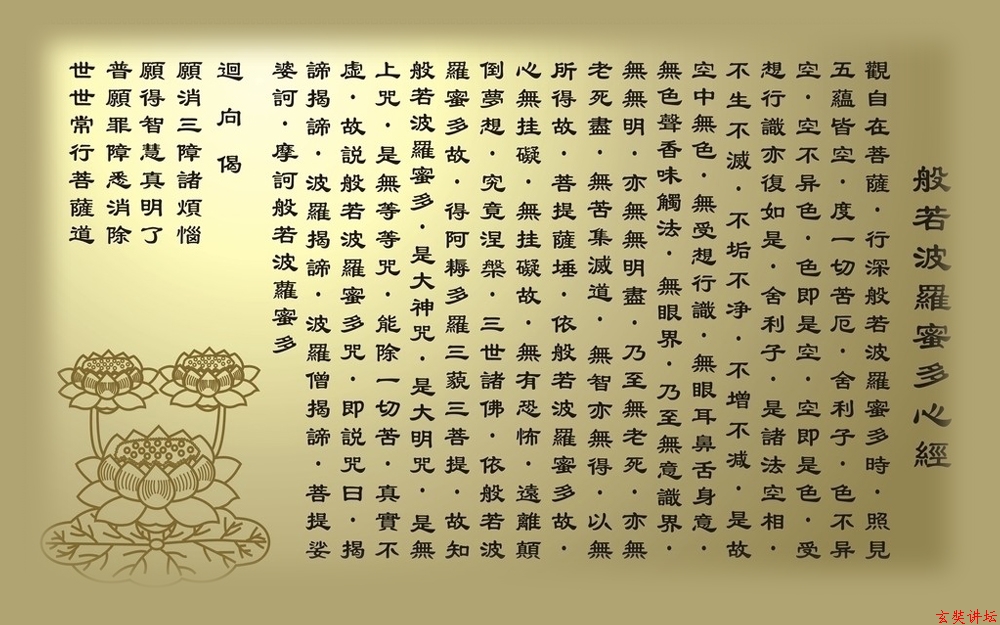 般若波羅蜜多心經
觀自在菩薩．行深般若波羅蜜多時．照見
五蘊皆空．度一切苦厄．舍利子．色不异
空．空不异色．色即是空．空即是色．受
想行識亦復如是．舍利子．是諸法空相．
不生不滅．不垢不净．不增不减．是故
空中無色．無受想行識．無眼耳鼻舌身意．
無色聲香味觸法．無眼界．乃至無意識界．
無無明．亦無無明盡．乃至無老死．亦無
老死盡．無苦集滅道．無智亦無得．以無
所得故．菩提薩埵．依般若波羅蜜多故．
心無挂礙．無挂礙故．無有恐怖．遠離顛
倒夢想．究竟涅槃．三世諸佛．依般若波
羅蜜多故．得阿耨多羅三藐三菩提．故知
般若波羅蜜多．是大神咒．是大明咒．是無
上咒．是無等等咒．能除一切苦．真實不
虛．故説般若波羅蜜多咒．即説咒曰．揭
諦揭諦．波羅揭諦．波羅僧揭諦．菩提娑
婆訶．摩訶般若波蘿蜜多
迴向偈
願消三障諸煩惱
願得智慧真明了
普願罪障悉消除
世世常行菩薩道
玄奘讲坛